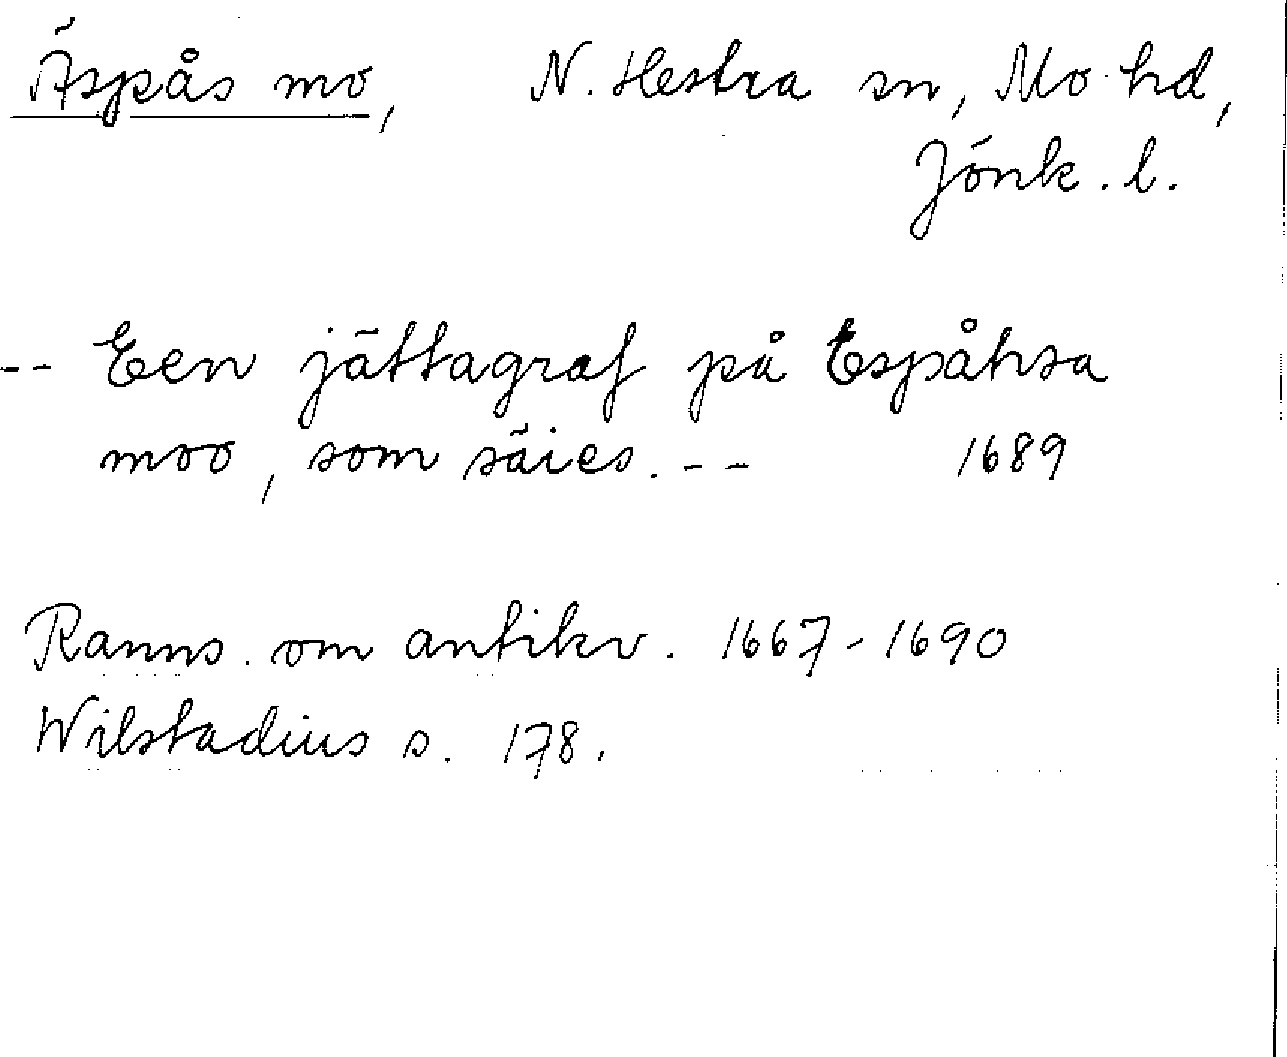 Äspås mo, N. Hestra sn, Mo hd,
Jönk. l.
-- Een jättagraf på Espåhsa
moo, som säies. -- 1689
Ranns. om antikv. 1667-1690
Wilstadius s. 178.